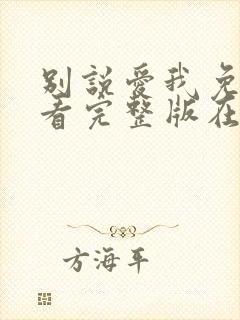 別說愛我免
看完整版在
方海平